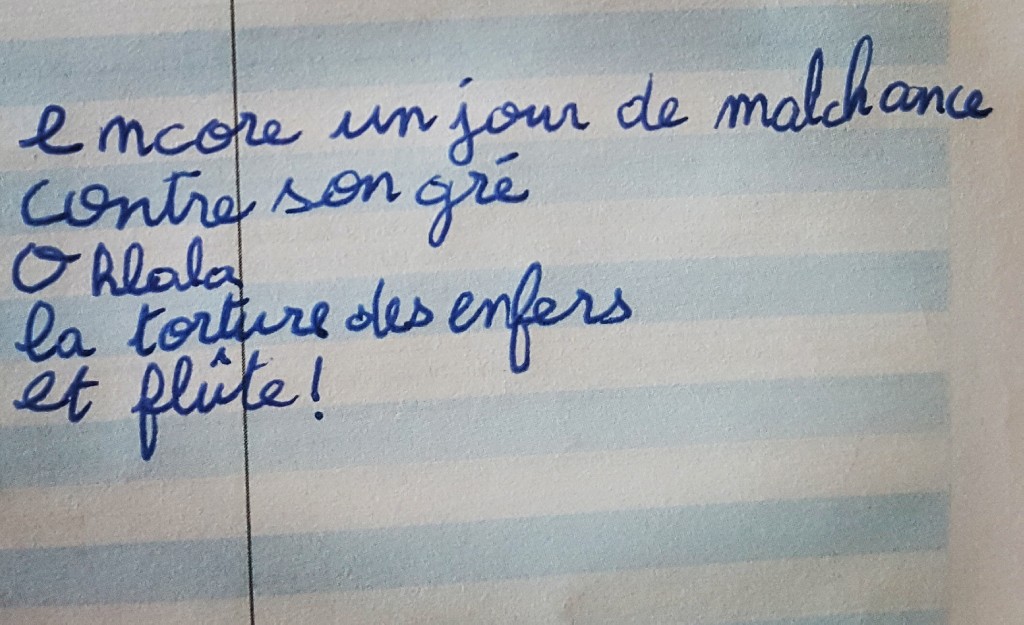 encore un jour de malchance
contre son gré
Ohlala
la torture des enfers
et flûte!